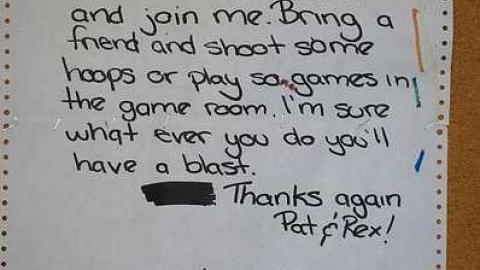 and join me. Bring a
friend and shoot some
hoops or play so games in
the game room. I'm sure
what ever you do you'll
have a blast.
Thanks again
Pat & Rex!